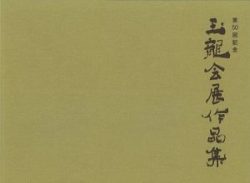 第50回記念
玉龍会展作品集